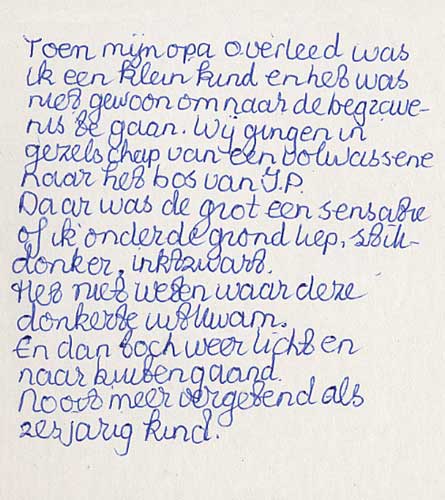 Toen mijn opa overleed was
ik een klein kind en het was
niet gewoon om naar de begrawe-
nis te gaan. Wij gingen in
gezelschap van een volwassene
naar het bos van J.P.
Daar was de grot een sensatie
of ik onder de grond liep, stik-
donker, inktzwart.
Het niet weten waar deze
donkerte uitkwam.
En dan toch weer licht en
naar buiten gaand.
Nooit meer vergetend als
zesjarig kind.